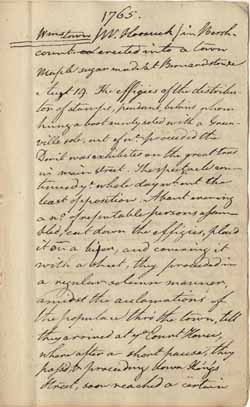 1765.
Wmstown (W. Hoosuck) in Massh.
counted erected into a town
Maple sugar made at Bernardstown
Augt 14. The effigies of the distribu-
tor of stamps, pendent, behind whom
hung a boot newly soled with a Gren-
ville sole, out of wh. proceeded the
Devil was exhibited on the great tree
in main street. The spectacle con-
tinued ye whole day without the
least opposition. About evening
a no. of reputable persons assem-
bled, cut down the effigies, placed
it on a bier, and covering it
with a sheet, they proceeded in
a regular solemn manner,
amidst the acclamations of
the populace thro the town, till
they arrived at ye Court House,
where after a short pause, they
passed & proceeding down King
Street, soon reached a certain